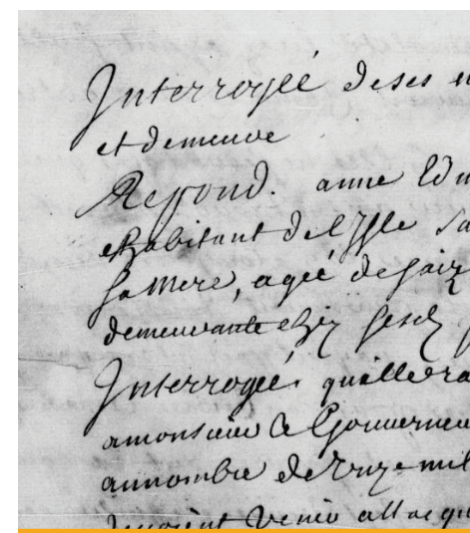 Interrogée de ses n
et demeure
Repond. anne Edm
et habitant de l'Isle Sa
sa mere, agée de Saiz
demeurante chez ses d
Interrogée, quelle ra
a monsieur le Gouverneu
au nombre de onze mil
devoient venir attaqu